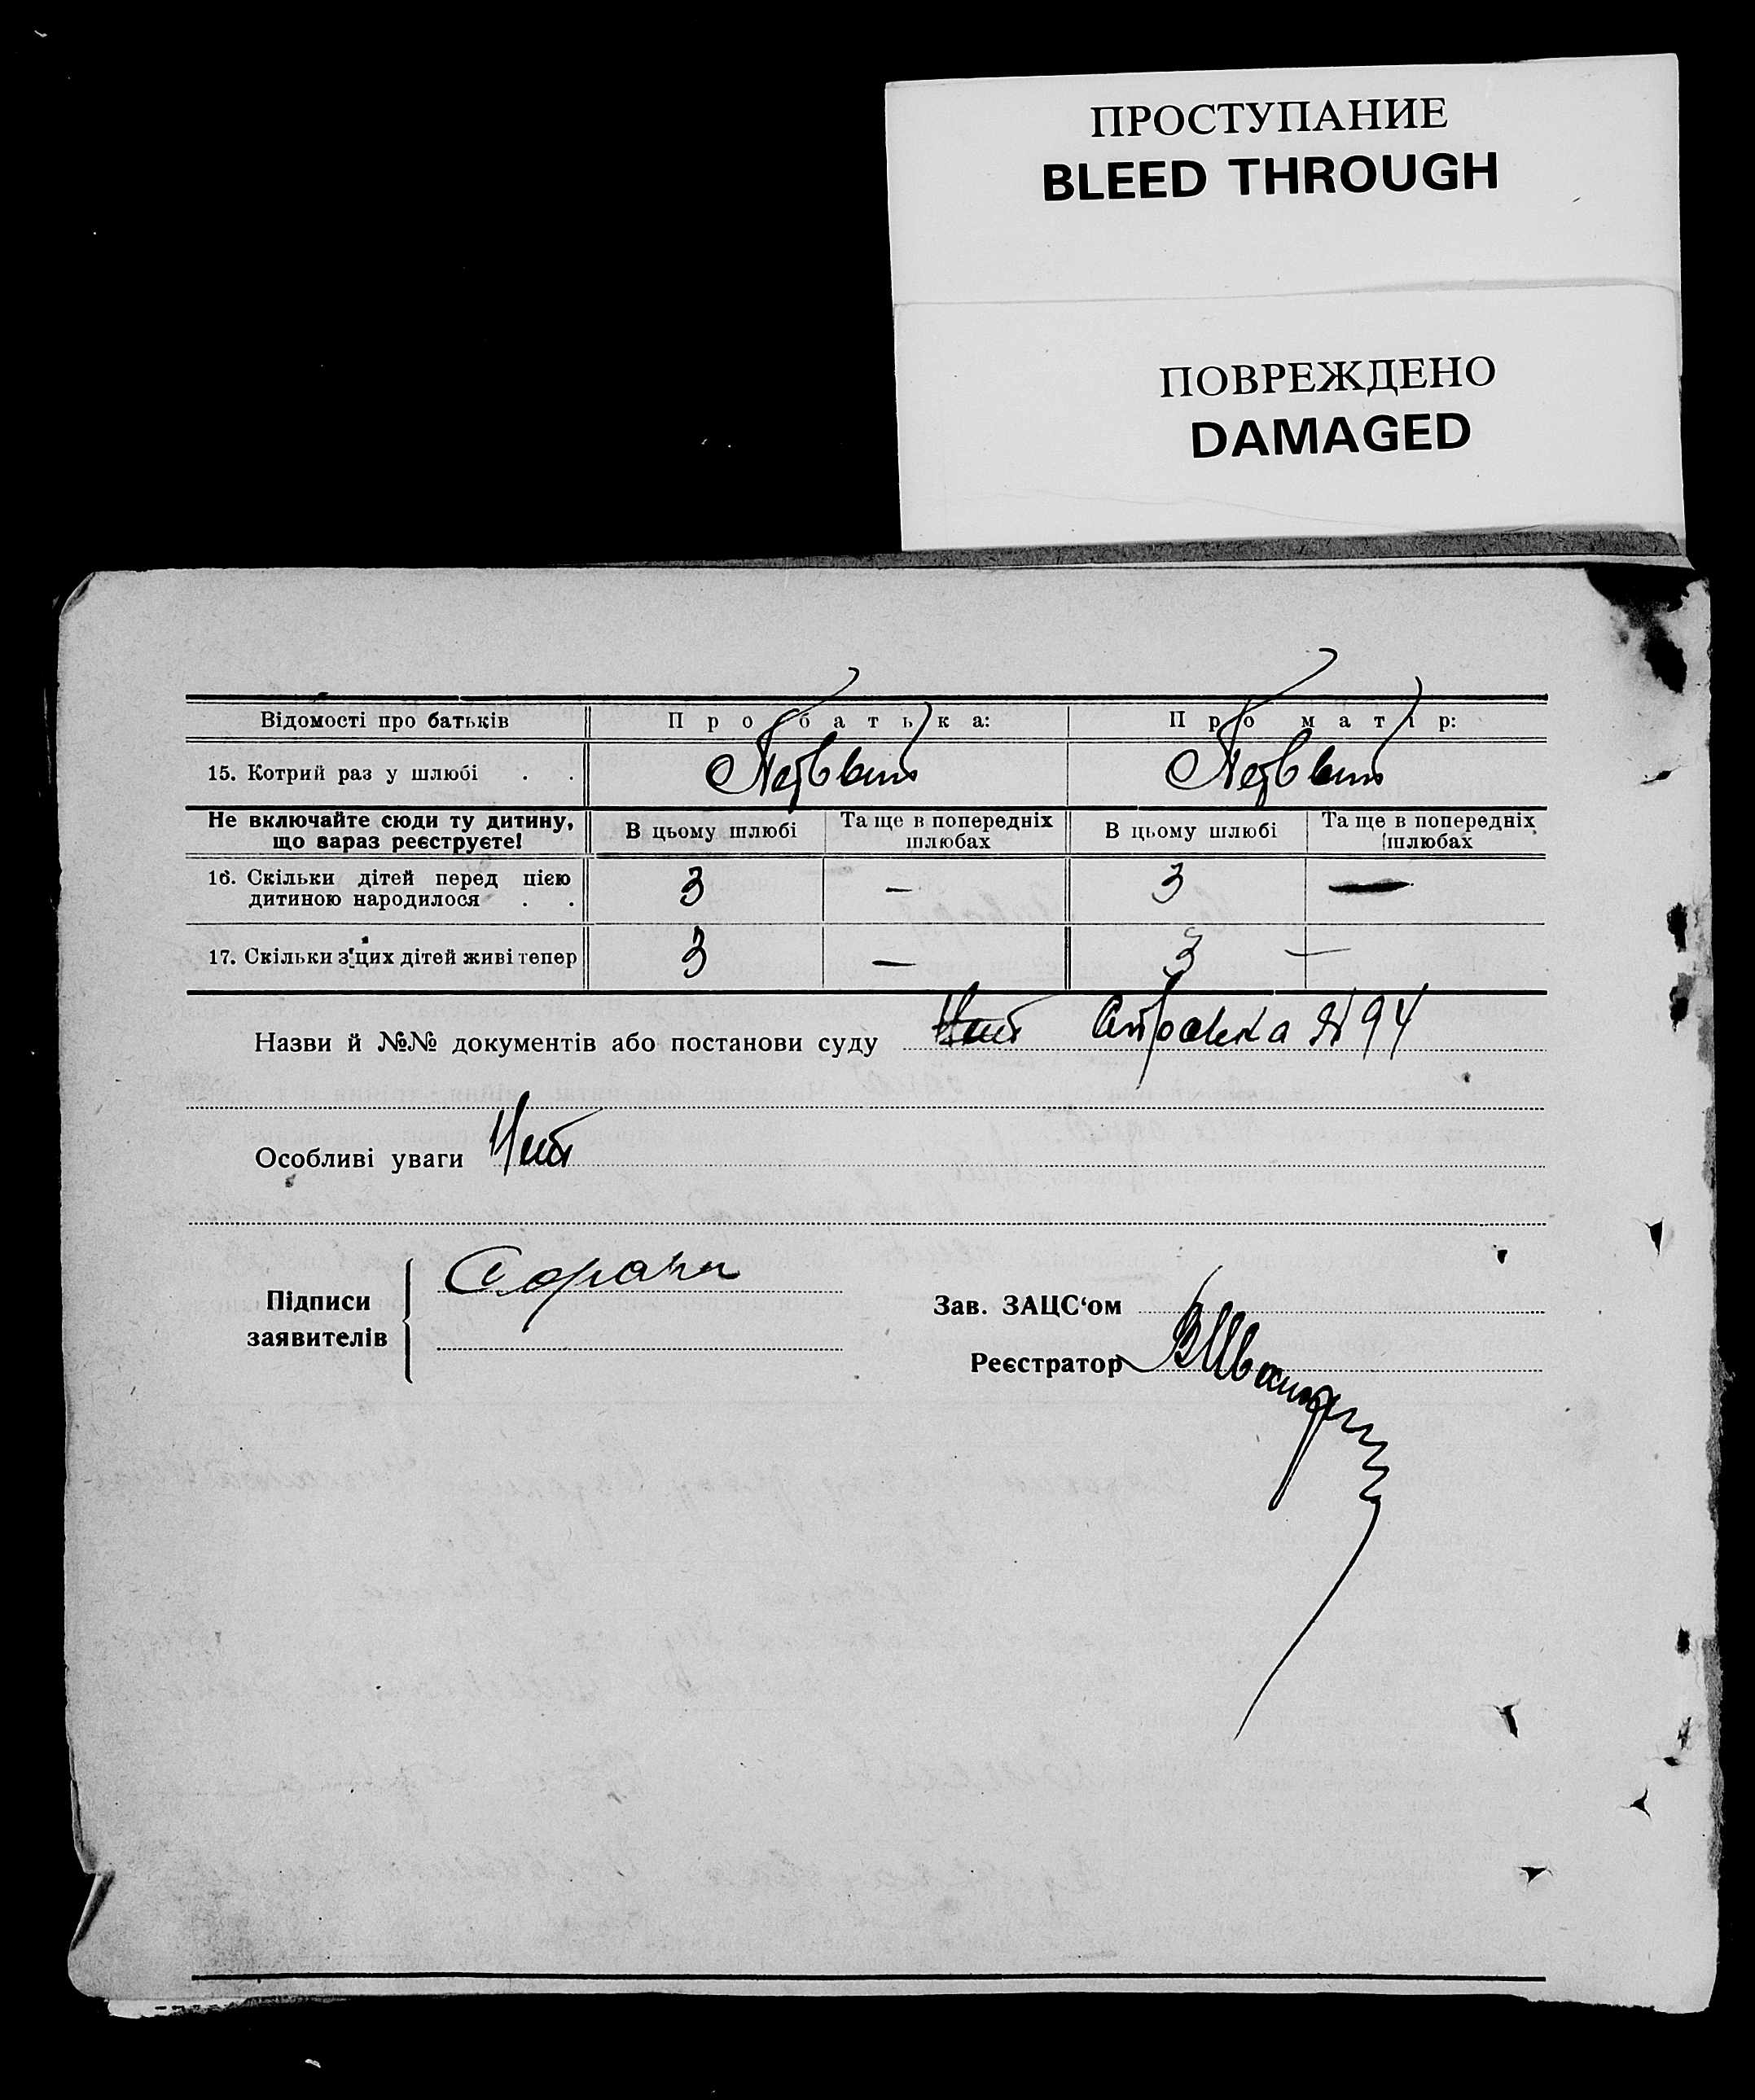 ПРОСТУПАНИЕ
BLEED THROUGH
ПОВРЕЖДЕНО
DAMAGED
Відомості про батьків Про батька: Про матір:
15. Котрий раз у шлюбі . . Первый Первый
Не включайте сюди ту дитину, що зараз реєструєте! В цьому шлюбі Та ще в попередніх шлюбах В цьому шлюбі Та ще в попередніх шлюбах
16. Скільки дітей перед цією дитиною народилося . . 3 — 3 —
17. Скільки з'цих дітей живі тепер 3 — 3 —
Назви й №№ документів або постанови суду Справка №94
Особливі уваги Нет
Підписи заявителів
Зав. ЗАЦС‘ом
Реєстратор